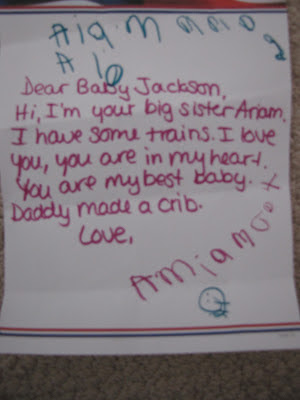 Dear Baby Jackson,
Hi, I'm your big sister Ariam.
I have some trains. I love
you, you are in my heart.
You are my best baby.
Daddy made a crib.
Love,